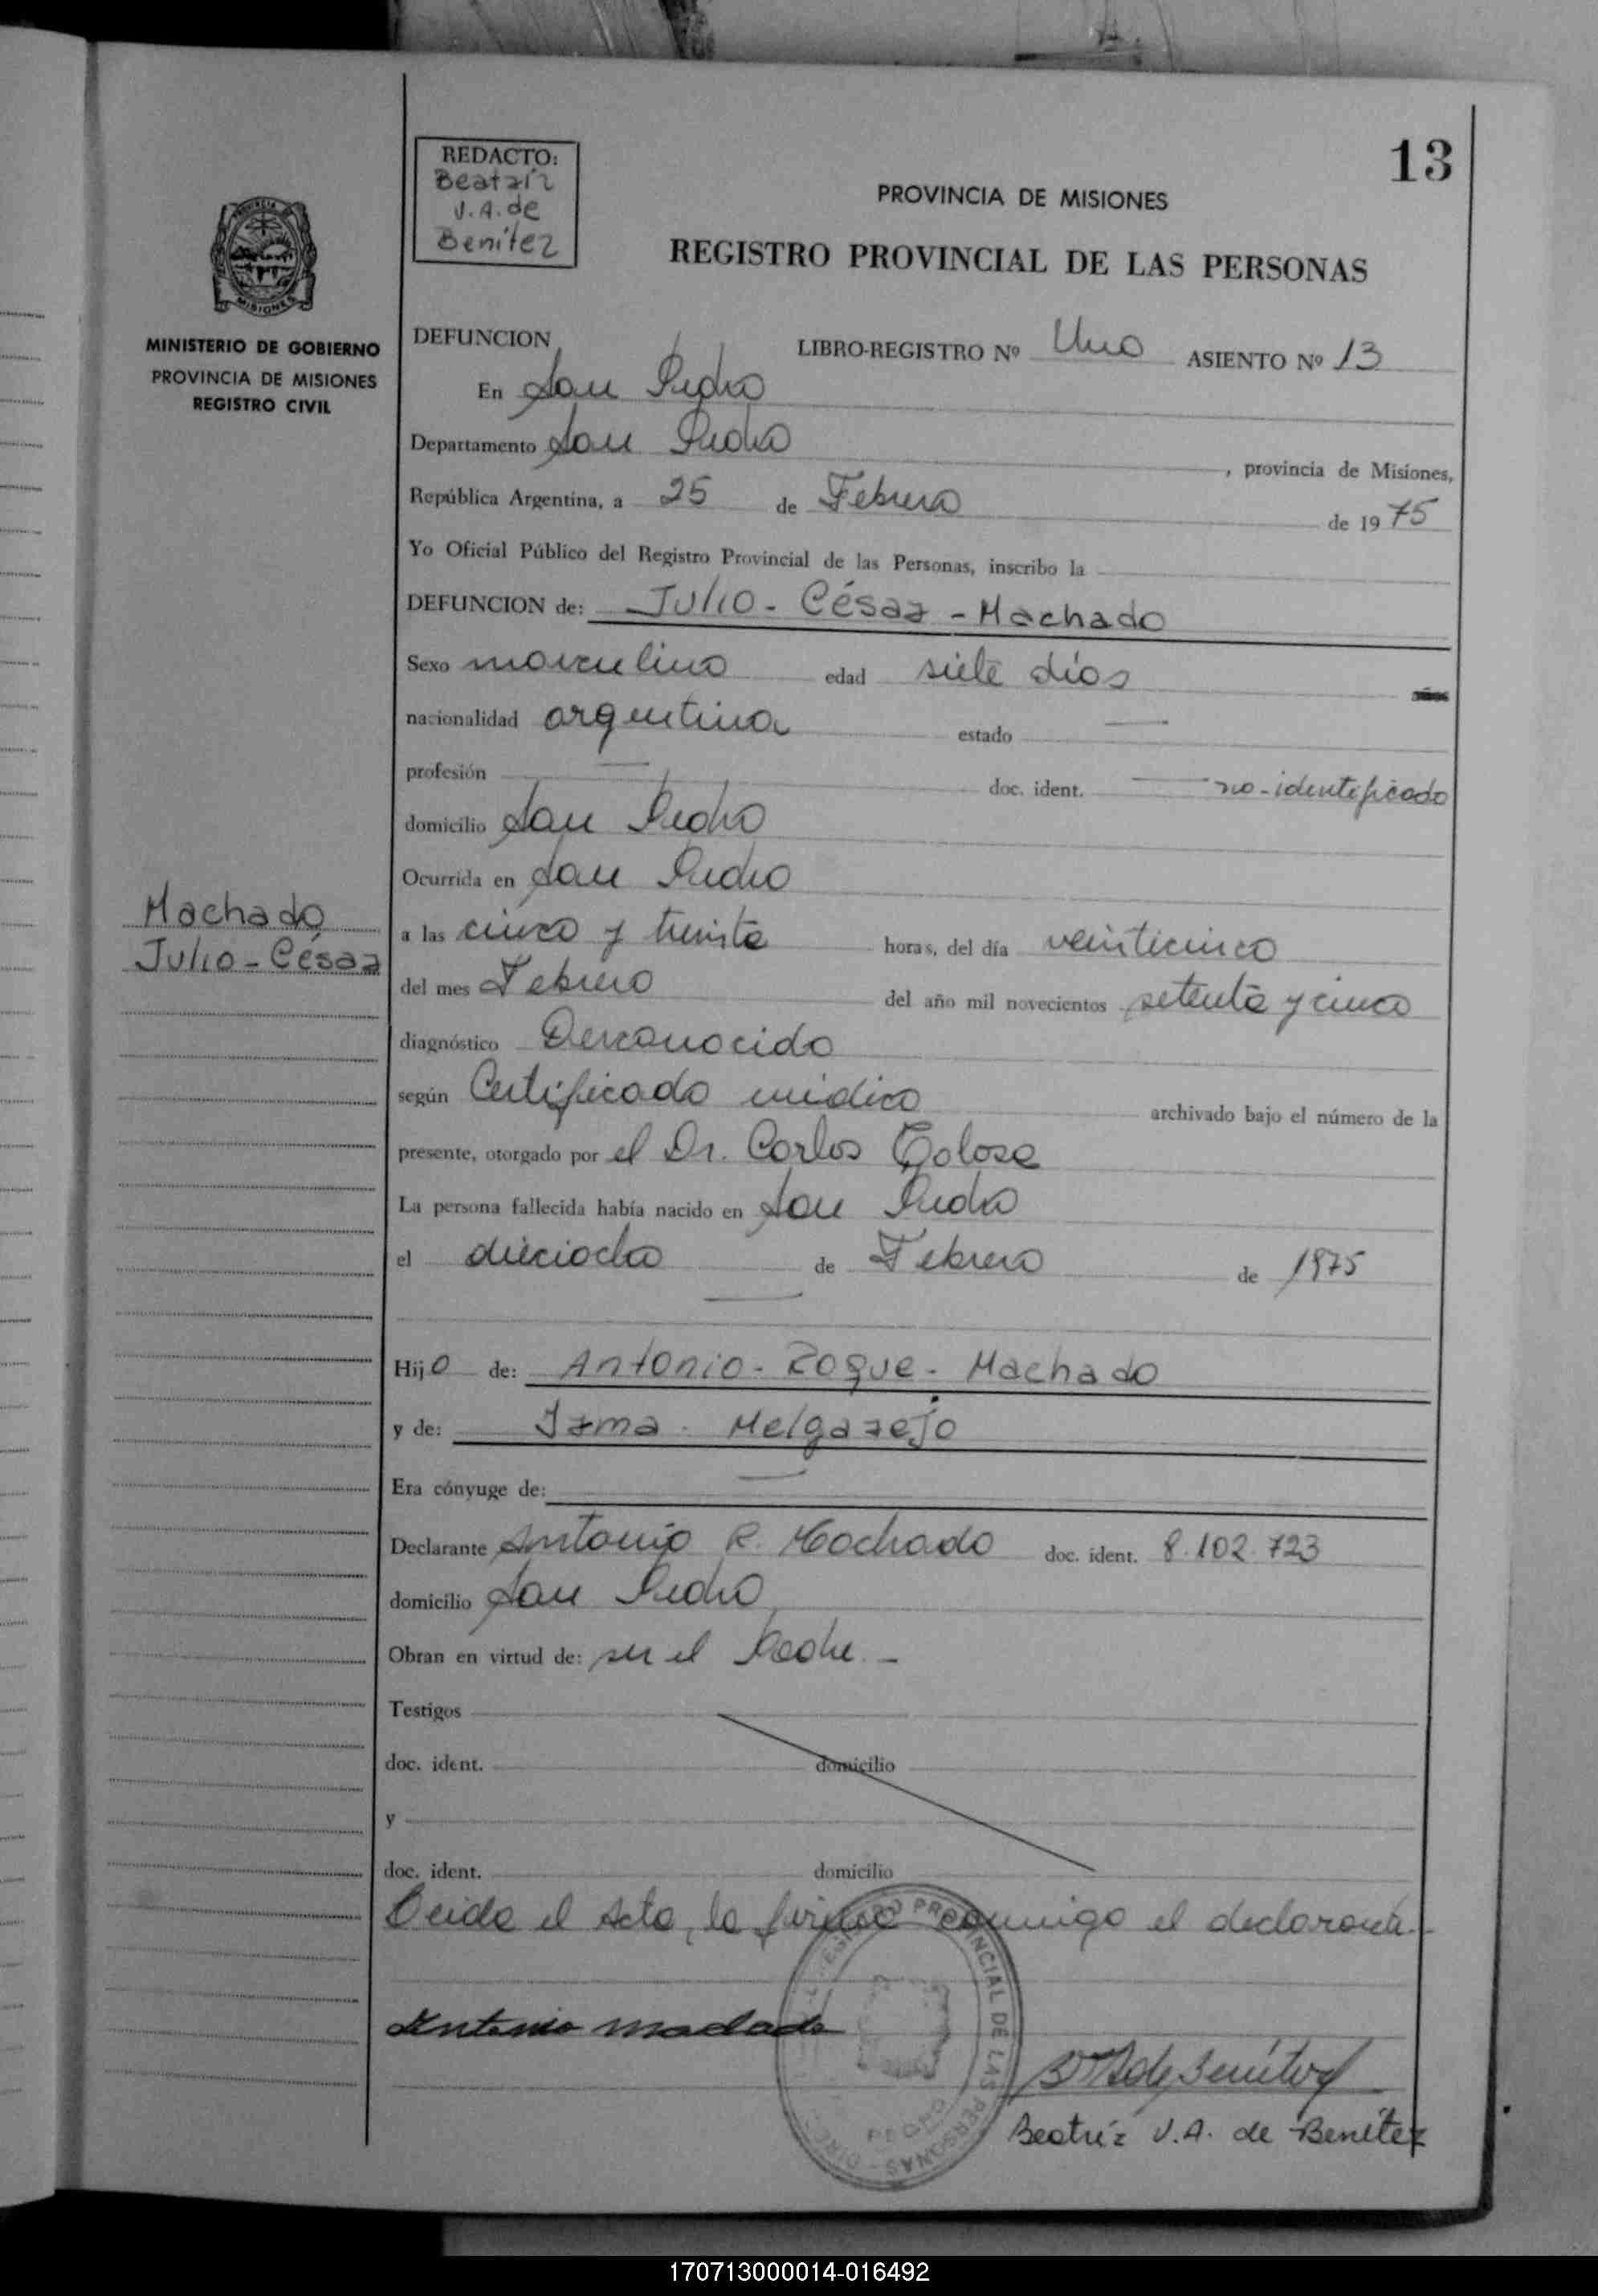 13
REDACTO:
Beatriz
V.A. de
Benítez
PROVINCIA DE MISIONES
REGISTRO PROVINCIAL DE LAS PERSONAS
MISIONES
MINISTERIO DE GOBIERNO
PROVINCIA DE MISIONES
REGISTRO CIVIL
DEFUNCION
LIBRO-REGISTRO Nº Uno ASIENTO Nº 13
En San Pedro
Departamento San Pedro, provincia de Misiones,
República Argentina, a 25 de Febrero de 1975
Yo Oficial Público del Registro Provincial de las Personas, inscribo la
DEFUNCION de: Julio - César - Machado
Sexo masculino edad siete días
nacionalidad argentina estado —
profesión — doc. ident. — no-identificado
domicilio San Pedro
Ocurrida en San Pedro
Machado
Julio - César
a las cinco y treinta horas, del día veinticinco
del mes Febrero del año mil novecientos setenta y cinco
diagnóstico Desconocido
según Certificado médico archivado bajo el número de la
presente, otorgado por el Dr. Carlos
La persona fallecida había nacido en San Pedro
el dieciocho de Febrero de 1975
—
Hijo de: Antonio - Roque - Machado
y de: Irma - Melgarejo
Era cónyuge de: —
Declarante Antonio R. Machado doc. ident. 8.102.723
domicilio San Pedro
Obran en virtud de: ser el Padre -
Testigos
doc. ident. domicilio
y
doc. ident. domicilio
Leida el Acta, la firma conmigo el declarante.-
REGISTRO PROVINCIAL DE LAS PERSONAS
Antonio machado
Beatríz V.A. de Benítez
170713000014-016492